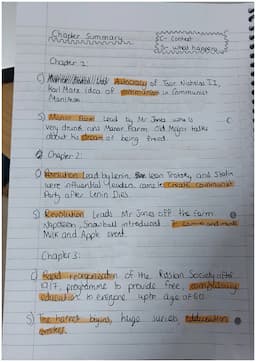 Chapter Summary
C- Context
S- What happens
Chapter 1:
C) Autocracy of Tsar Nicholas II,
Karl Marx idea of communism in Communist
Manifesto
S) Manor Farm lead by Mr Jones who is
very drunk and Manor Farm. Old Major talks
about his dream of being freed.
Chapter 2:
C) Revolution Lead by Lenin, Leon Trotsky and Stalin
were influential leaders come to create communist
Party after Lenin Dies.
S) Revolution leads Mr Jones off the farm
Napoleon, Snowball introduced
Milk and Apple event.
Chapter 3:
C) Rapid reorganisation of the Russian Society after
1917, programme to provide free, compulsory
education to everyone upto age of
S) The harvest begins, huge success